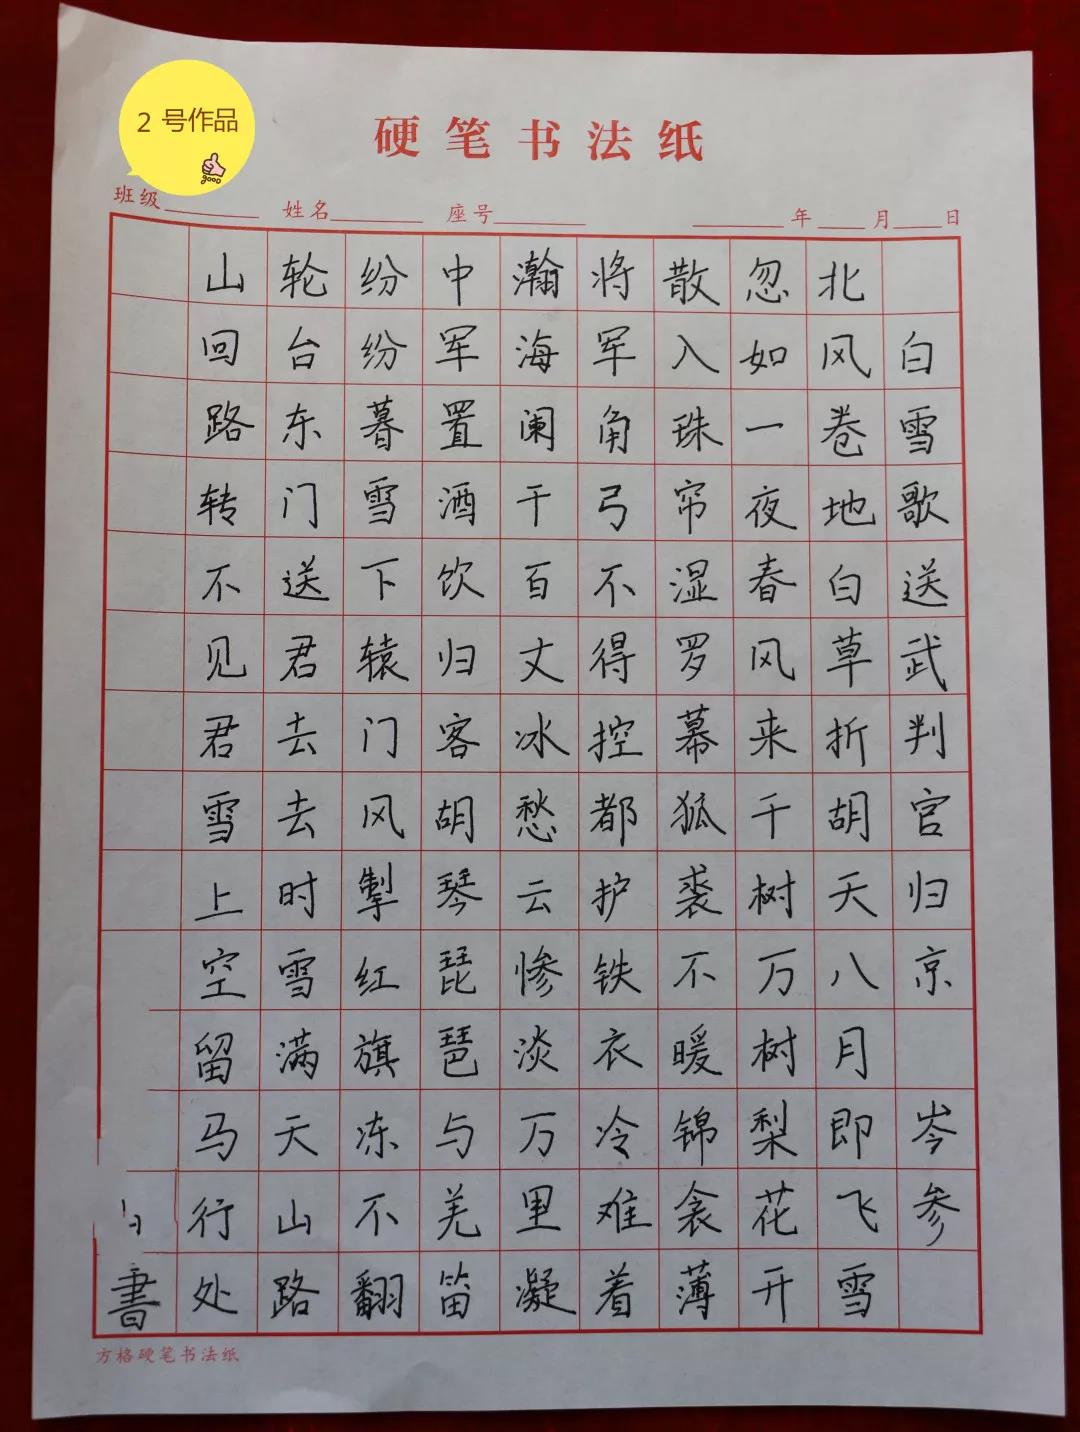 2 号作品
good
硬笔书法纸
班级 姓名 座号 年 月 日
白雪歌送武判官归京 岑参
北风卷地白草折胡天八月即飞雪
忽如一夜春风来千树万树梨花开
散入珠帘湿罗幕狐裘不暖锦衾薄
将军角弓不得控都护铁衣冷难着
瀚海阑干百丈冰愁云惨淡万里凝
中军置酒饮归客胡琴琵琶与羌笛
纷纷暮雪下辕门风掣红旗冻不翻
轮台东门送君去去时雪满天山路
山回路转不见君雪上空留马行处
書
方格硬笔书法纸